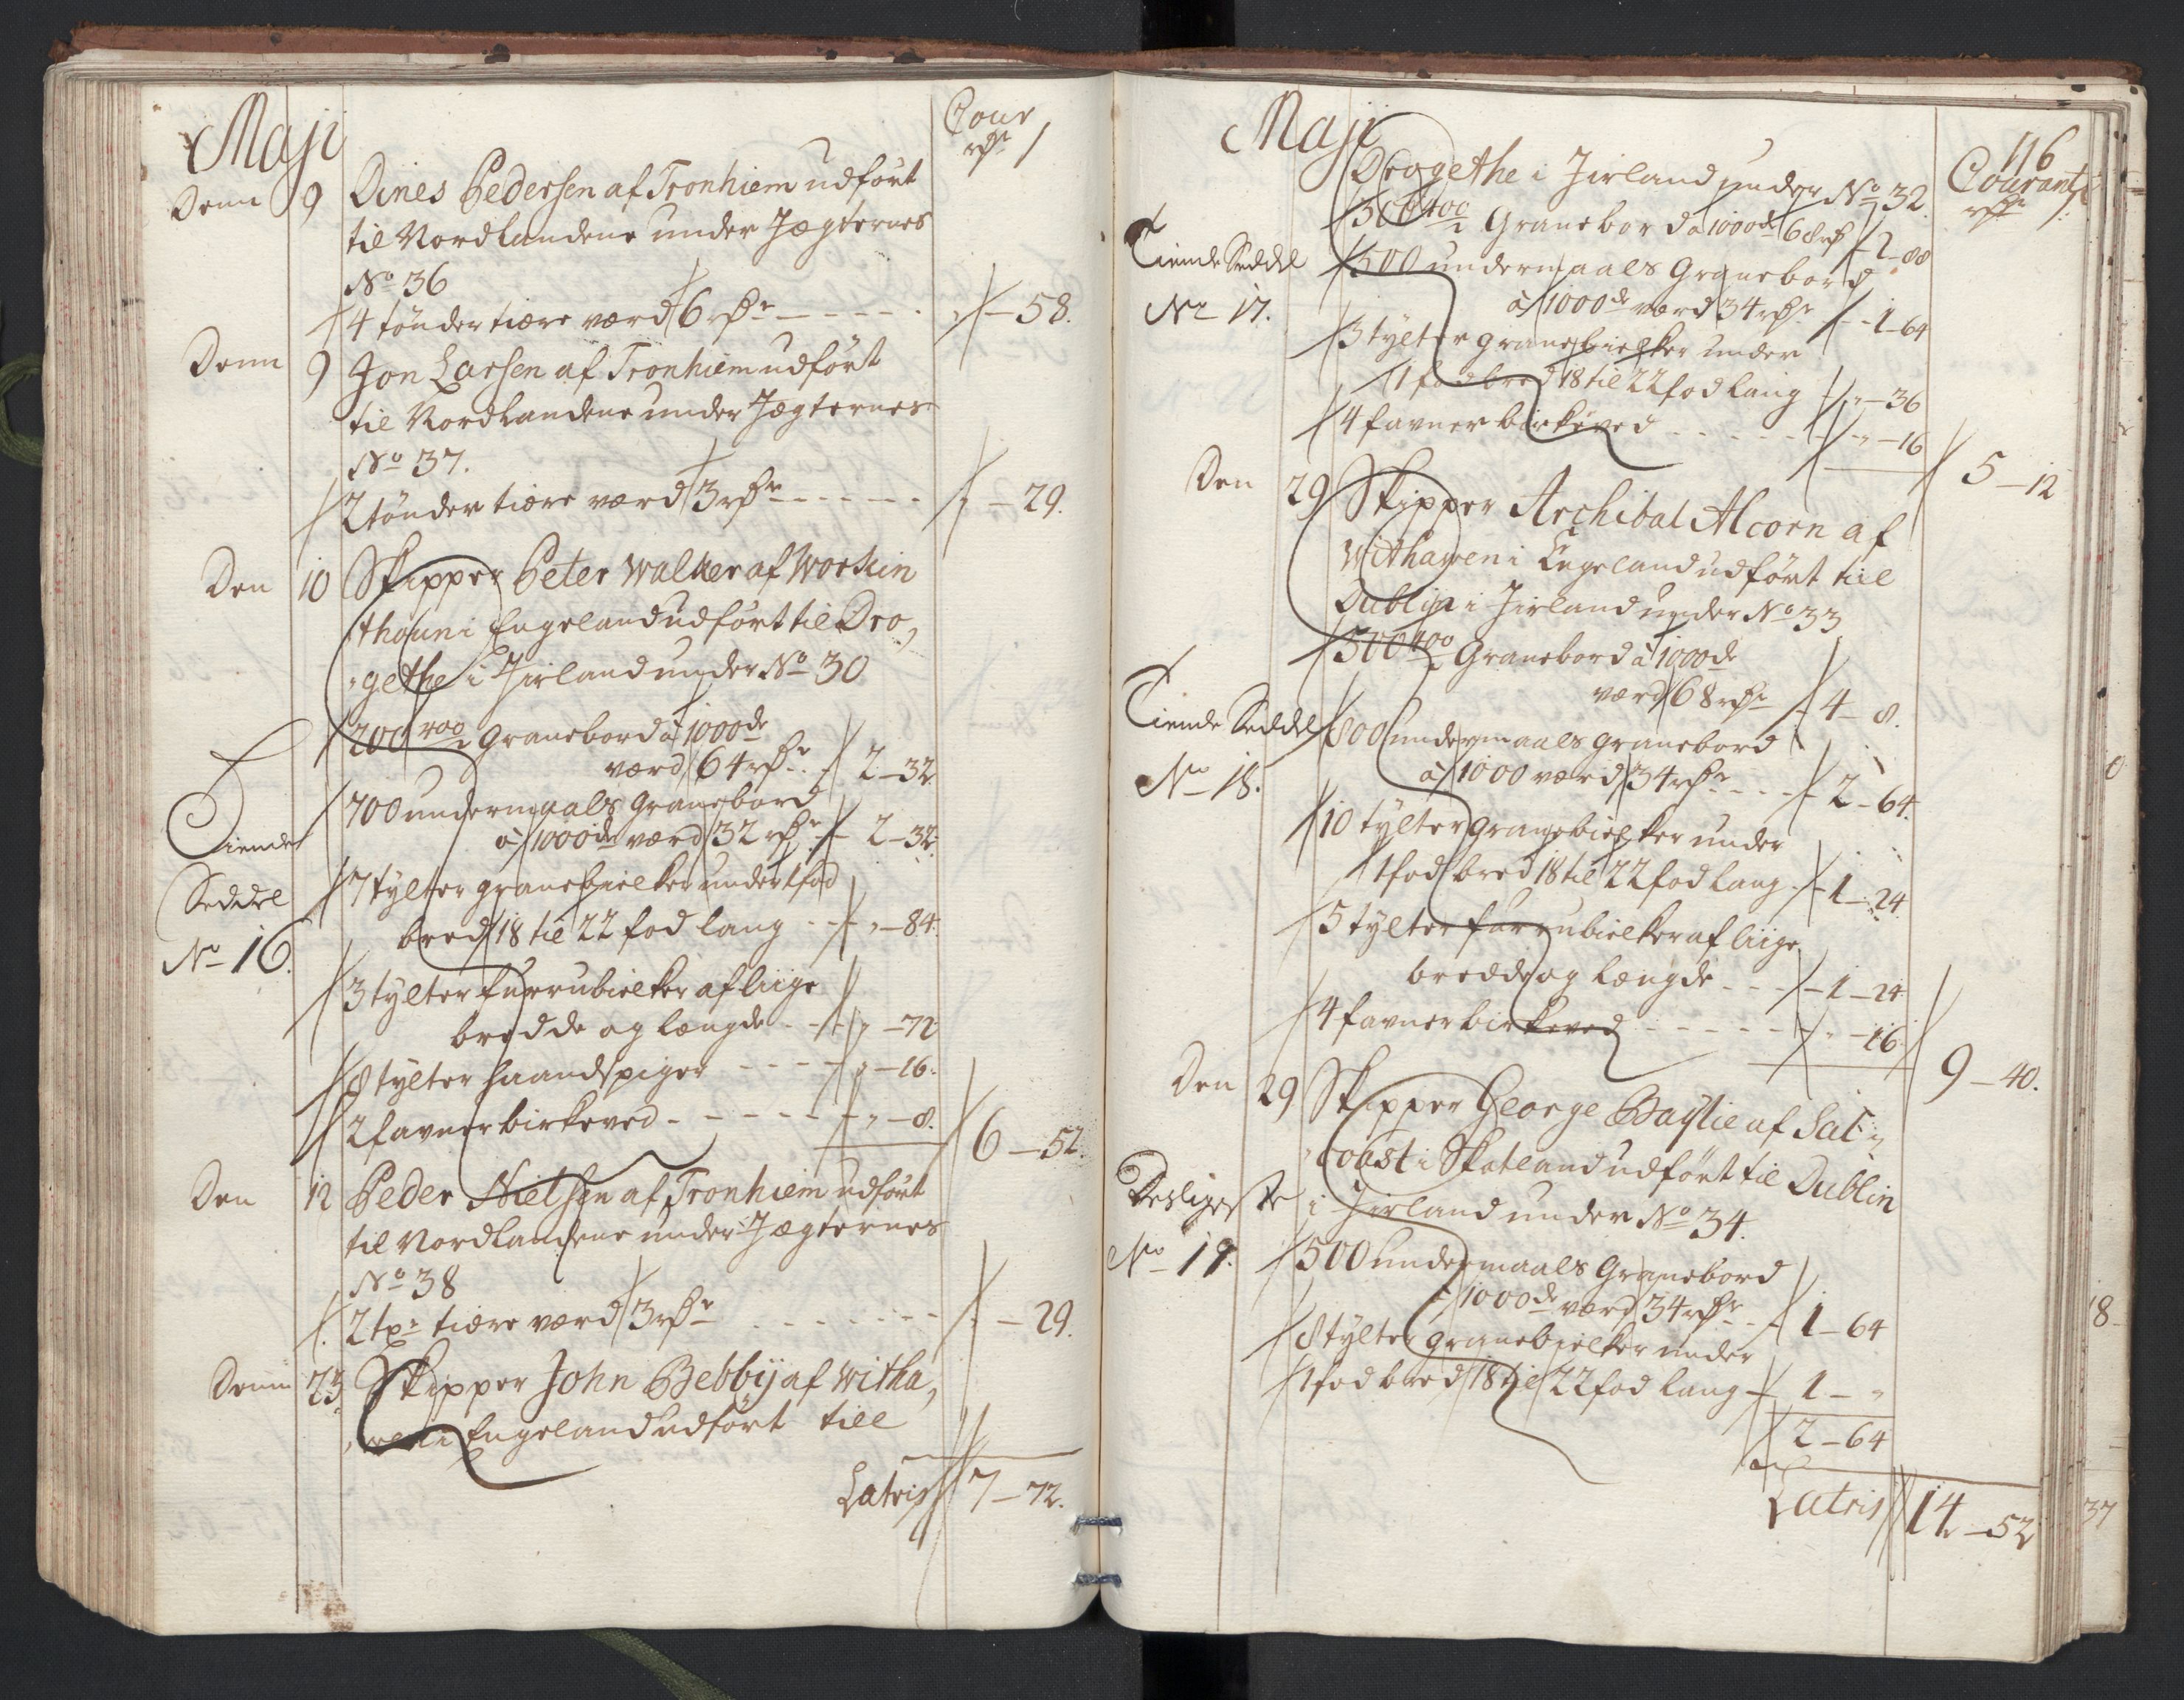 Maji
Cour
rdr
Denn 9 Dines Pedersen af Tronhiem udført
til Nordlandene under Jægternes
No 36
4 tønder tiære værd 6 rdr - - - - „ - 58.
Denn 9 Jon Larsen af Tronhiem udført
til Nordlandene under Jægternes
No 37.
2 tønder tiære værd 3 rdr - - - - - „ - 29.
Den 10 Skipper Peter Walker af Workin
thoun i Engeland udført til Dro,
„gethe i Jirland under No 30
200 400de Granebord á 1000de
værd 64 rdr - 2 - 32
700 undermaals Granebord
á 1000de værd 32 rdr - 2 - 32.
7 tylter granebielker under 1 fod
bred 18 til 22 fod lang - - „ - 84.
Tiende
Seddel
No 16.
3 tylter furrubielker af liige
bredde og længde - - „ - 72
8 tylter haandspiger - - - - „ - 16.
2 favner birkeved - - - - - - „ - 8.
6 - 52.
Den 12 Peder Nielsen af Tronhiem udført
til Nordlandene under Jægternes
No 38
2 tr tiære værd 3 rdr - - - - - - „ - 29.
Denn 23 Skipper John Bebbij af Witha,
„wen i Engeland udført till
Latris 7 - 72.
Maji
116
Courant
rdr
Drogethe i Jirland under No 32.
300 400de Granebord á 1000de 68 rdr 2 - 88
Tiende Seddel
No 17.
500 undermaals Granebord
á 1000de værd 34 rdr - - 1 - 64
3 tylter granebielker under
1 fod bred 18 til 22 fod lang „ - 36
4 favner birkeved - - - - - - „ - 16
5 - 12
Den 29 Skipper Archibal Alcorn af
Withawen i Engeland udført till
Dublin i Jirland under No 33
500 400de Granebord á 1000de
værd 68 rdr - 4 - 8.
Tiende Seddel
No 18.
800 undermaals granebord
á 1000 værd 34 rdr - - - 2 - 64.
10 tylter granebielker under
1 fod bred 18 til 22 fod lang - 1 - 24.
5 tylter furrubielker af liige
bredde og længde - - - 1 - 24.
4 favner birkeved - - - - - „ - 16.
9 - 40.
Den 29 Skipper George Baylie af Sal„
„coast i Skotland udført til Dublin
i Jirland under No 34.
Desligeste
No 19.
500 undermaals Granebord
á 1000de værd 34 rdr - - 1 - 64
8 tylter granebielker under
1 fod bred 18 til 22 fod lang - 1 - „
2 - 64
Latris 14 - 52